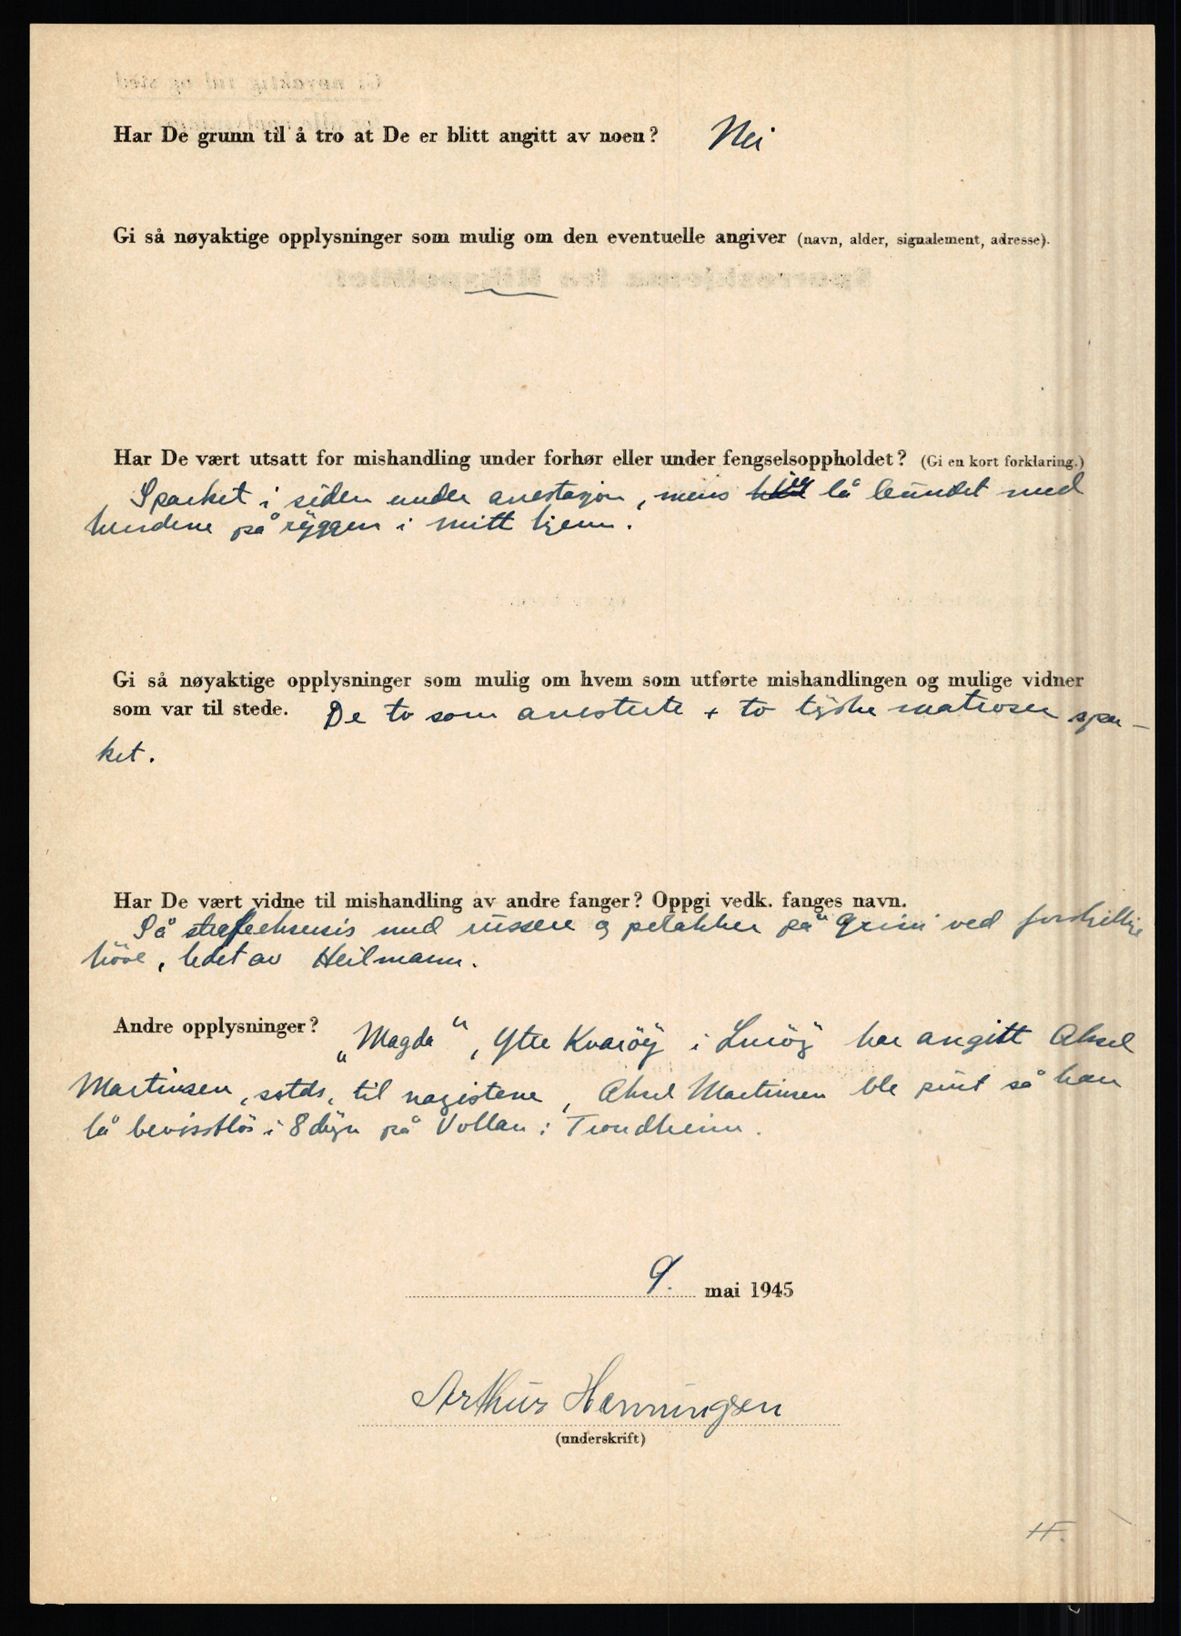 Har De grunn til å tro at De er blitt angitt av noen? Nei
Gi så nøyaktige opplysninger som mulig om den eventuelle angiver (navn, alder, signalement, adresse).
Har De vært utsatt for mishandling under forhør eller under fengselsoppholdet? (Gi en kort forklaring.)
Sparket i siden under arrestasjon, mens jeg lå bundet med
hendene på ryggen i mitt hjem.
Gi så nøyaktige opplysninger som mulig om hvem som utførte mishandlingen og mulige vidner
som var til stede. De to som arresterte + to tyske matroser spar-
ket.
Har De vært vidne til mishandling av andre fanger? Oppgi vedk. fanges navn.
Så strafeeksersis med russere og polakker på Grini ved forskjellige
höve, ledet av Heilmann.
Andre opplysninger? „Magda", Ytre Kvaröy i Luröy har angitt Aksel
Martinsen, sstds, til nazistene, Aksel Martinsen ble pint så han
lå bevisstlös i 8 døgn på Vollan i Trondheim.
9. mai 1945
Arthur Hanningsen
(underskrift)